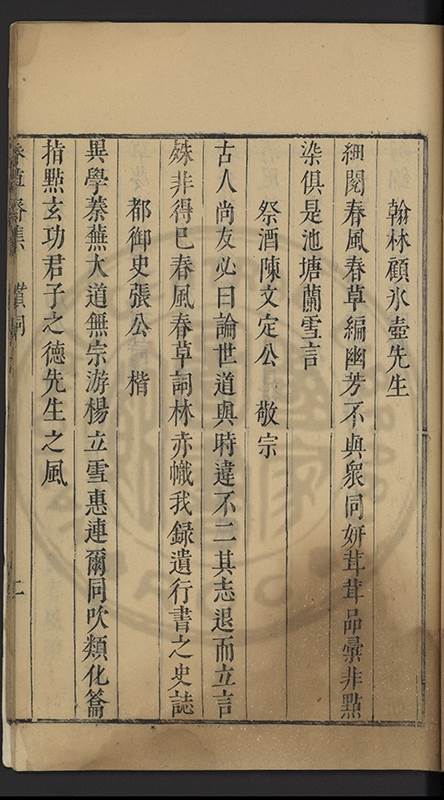 翰林顧氷壺先生
細閱春風春草編幽芳不與衆同妍茸茸品彚非點
染俱是池塘蘭雪言
祭酒陳文定公 敬宗
古人尚友必曰論世道與時違不二其志退而立言
殊非得巳春風春草詞林赤幟我錄遺行書之史誌
都御史張公 楷
異學蓁蕪大道無宗游楊立雪惠連爾同吹類化籥
指點玄功君子之德先生之風